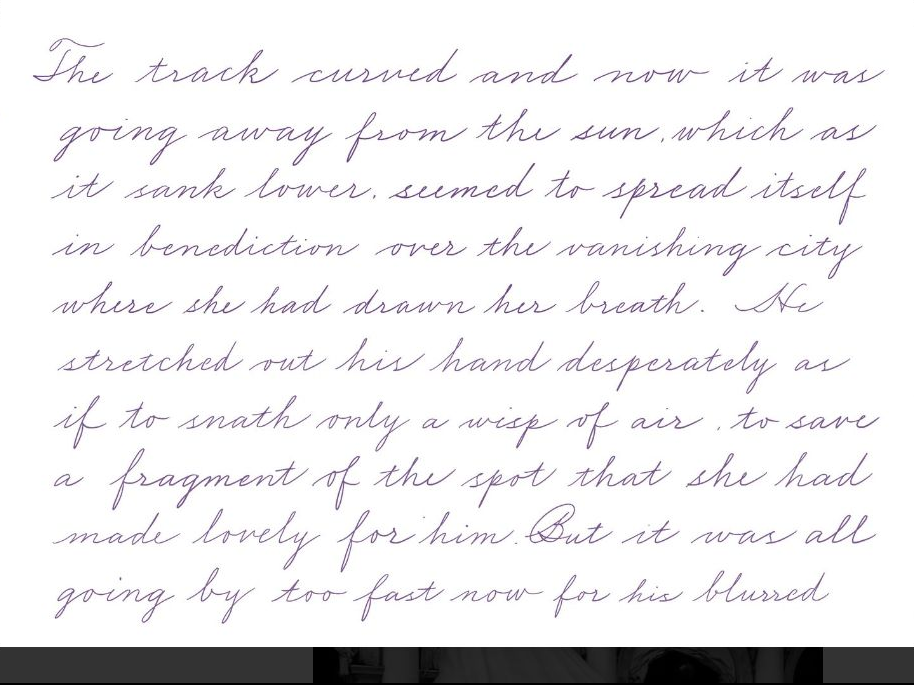 The track curved and now it was
going away from the sun, which as
it sank lower, seemed to spread itself
in benediction over the vanishing city
where she had drawn her breath. He
stretched out his hand desperately as
if to snath only a wisp of air, to save
a fragment of the spot that she had
made lovely for him. But it was all
going by too fast now for his blurred